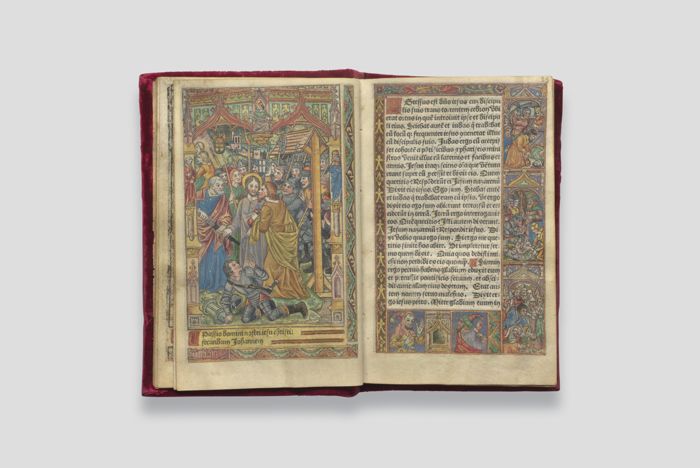 Passio domini nostri iesu christi:
secundum Johannem
Egressus est dns iesus cum discipu
lis suis trans torrentem cedron vbi
erat ortus in quē introiuit ipse et discipu
li eius. Sciebat autē et iudas q tradebat
eū locū: q frequenter iesus conuenerat illuc
cū discipulis suis. Judas ergo cū accepis
set cohortē a pōtificibus et phariseis minis
tros venit illuc cū laternis et facibus et
armis. Jesus itaq sciens oīa que ventura
erant super eū processit et dixit eis. Quem
queritis: Respōderūt ei Jesum nazarenū
Dixit eis iesus. Ego sum. Stabat autē
et iudas q tradebat eum cū ipsis. Ut ergo
dixit eis ego sum abierunt retrorsū et ce
ciderūt in terrā. Iterū ergo interrogauit
eos. Quē queritis: Illi autem dixerunt.
Jesum nazarenū: Respondit iesus. Di
xi vobis quia ego sum. Si ergo me que
ritis sinite hos abire. Ut impleretur ser
mo quem dixit. Quia quos dedisti mi
chi non perdidi ex eis quenq. Simon
ergo petrus habens gladium eduxit eum
et percussit pontificis seruum. et absci
dit auriculam eius dexteram. Erat au
tem nomen seruo malchus. Dixit er
go iesus petro. Mitte gladium tuum in